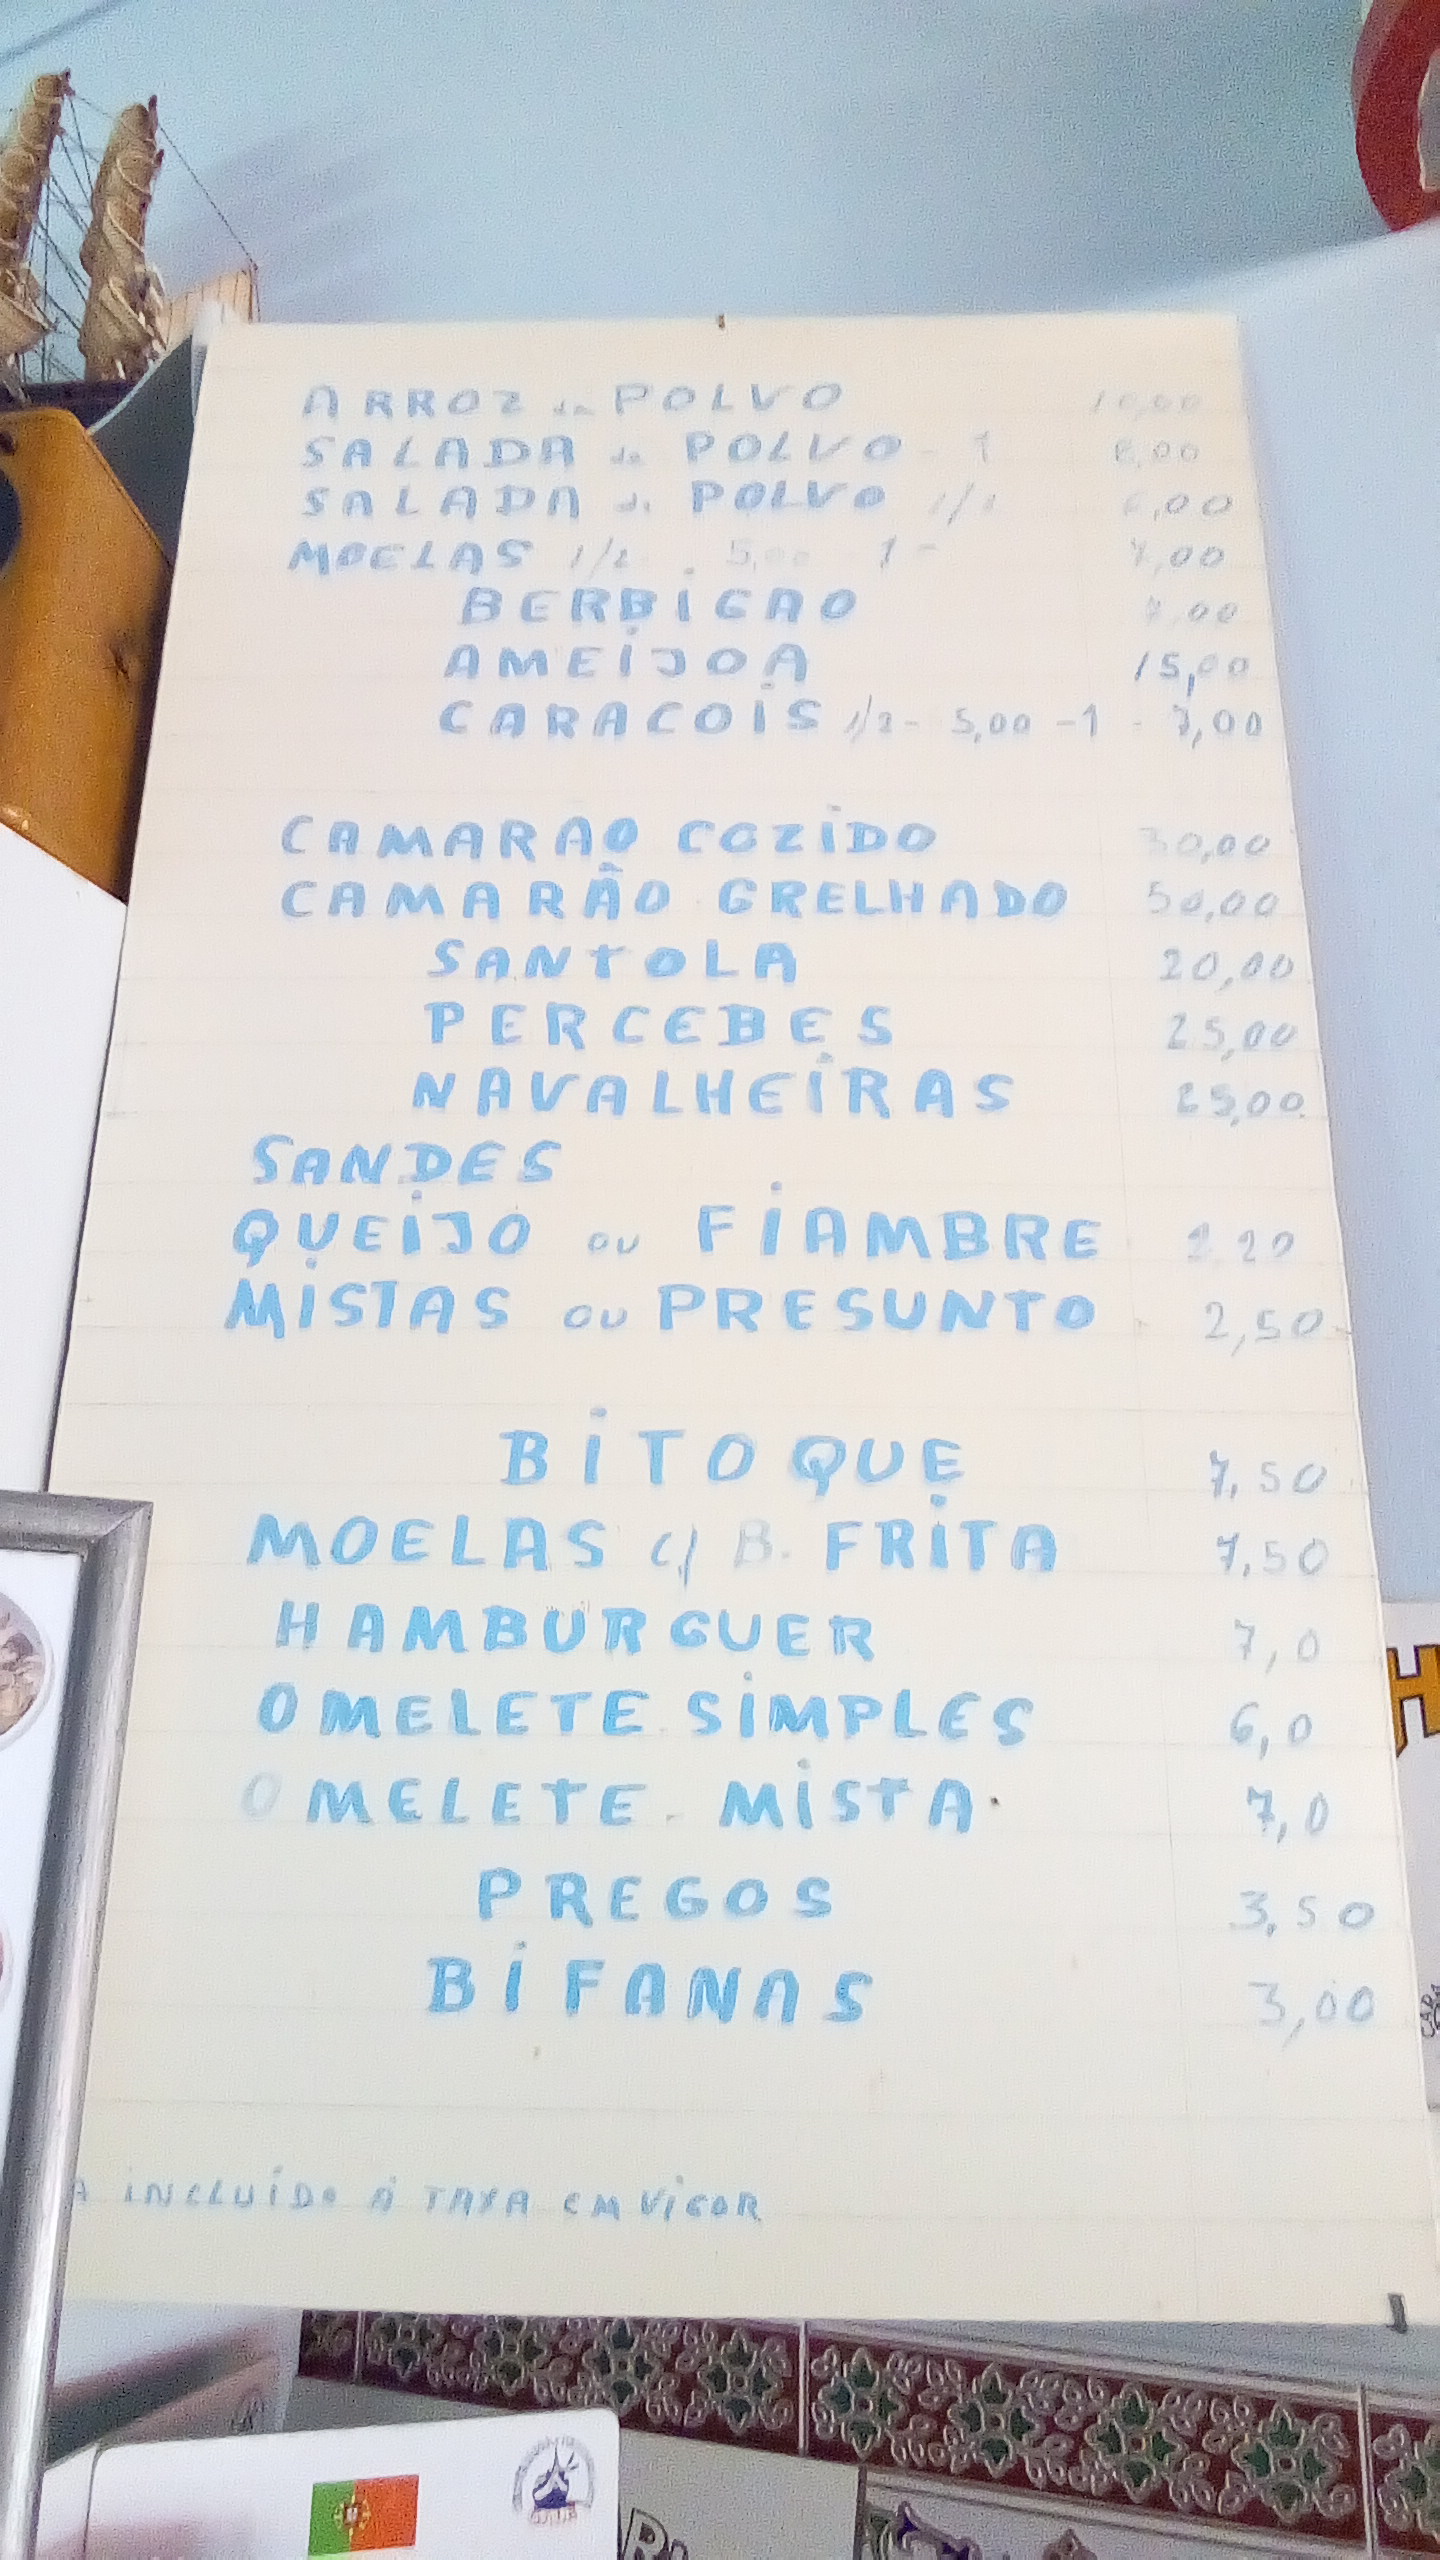 ARROZ de POLVO 10,00
SALADA de POLVO - 1 8,00
SALADA de POLVO 1/2 6,00
MOELAS 1/2 - 5,00 - 1 - 7,00
BERBIGAO 7,00
AMEIJOA 15,00
CARACOIS 1/2 - 5,00 - 1 - 7,00
CAMARAO COZIDO 30,00
CAMARÃO GRELHADO 50,00
SANTOLA 20,00
PERCEBES 25,00
NAVALHEIRAS 25,00
SANDES
QUEIJO OU FIAMBRE 2,20
MISTAS OU PRESUNTO 2,50
BITOQUE 7,50
MOELAS C/ B. FRITA 7,50
HAMBURGUER 7,0
OMELETE SIMPLES 6,0
OMELETE - MISTA 7,0
PREGOS 3,50
BIFANAS 3,00
A INCLUÍDO Á TAXA EM VIGOR